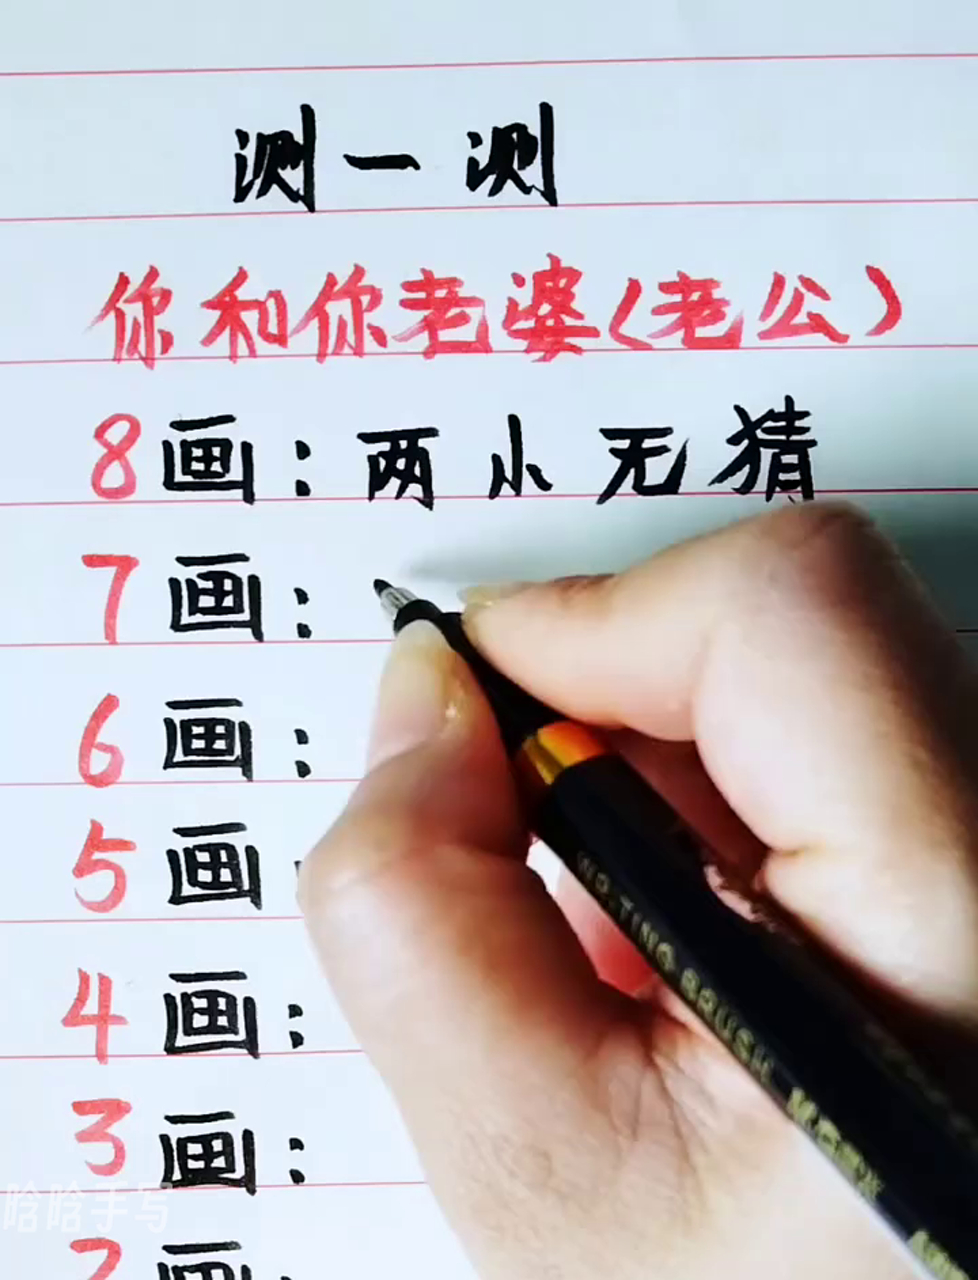 测一测
你和你老婆(老公)
8画：两小无猜
7画：
6画：
5画：
4画：
3画：
2画：
哈哈手写
WRITING BRUSH